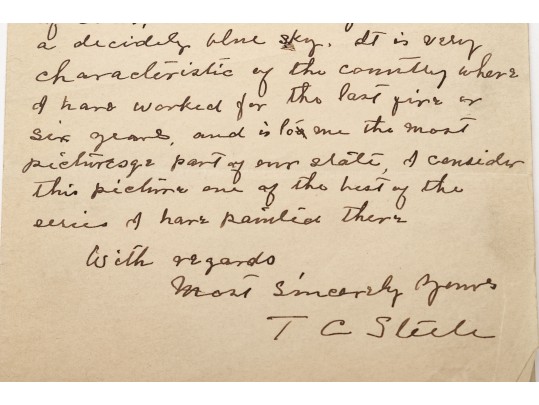 a decidely blue sky. It is very
characteristic of the country where
I have worked for the last five or
six years, and is to me the most
picturesqe part of our state, I consider
this picture one of the best of the
series I have painted there
With regards
Most Sincerely Yours
T C Steele